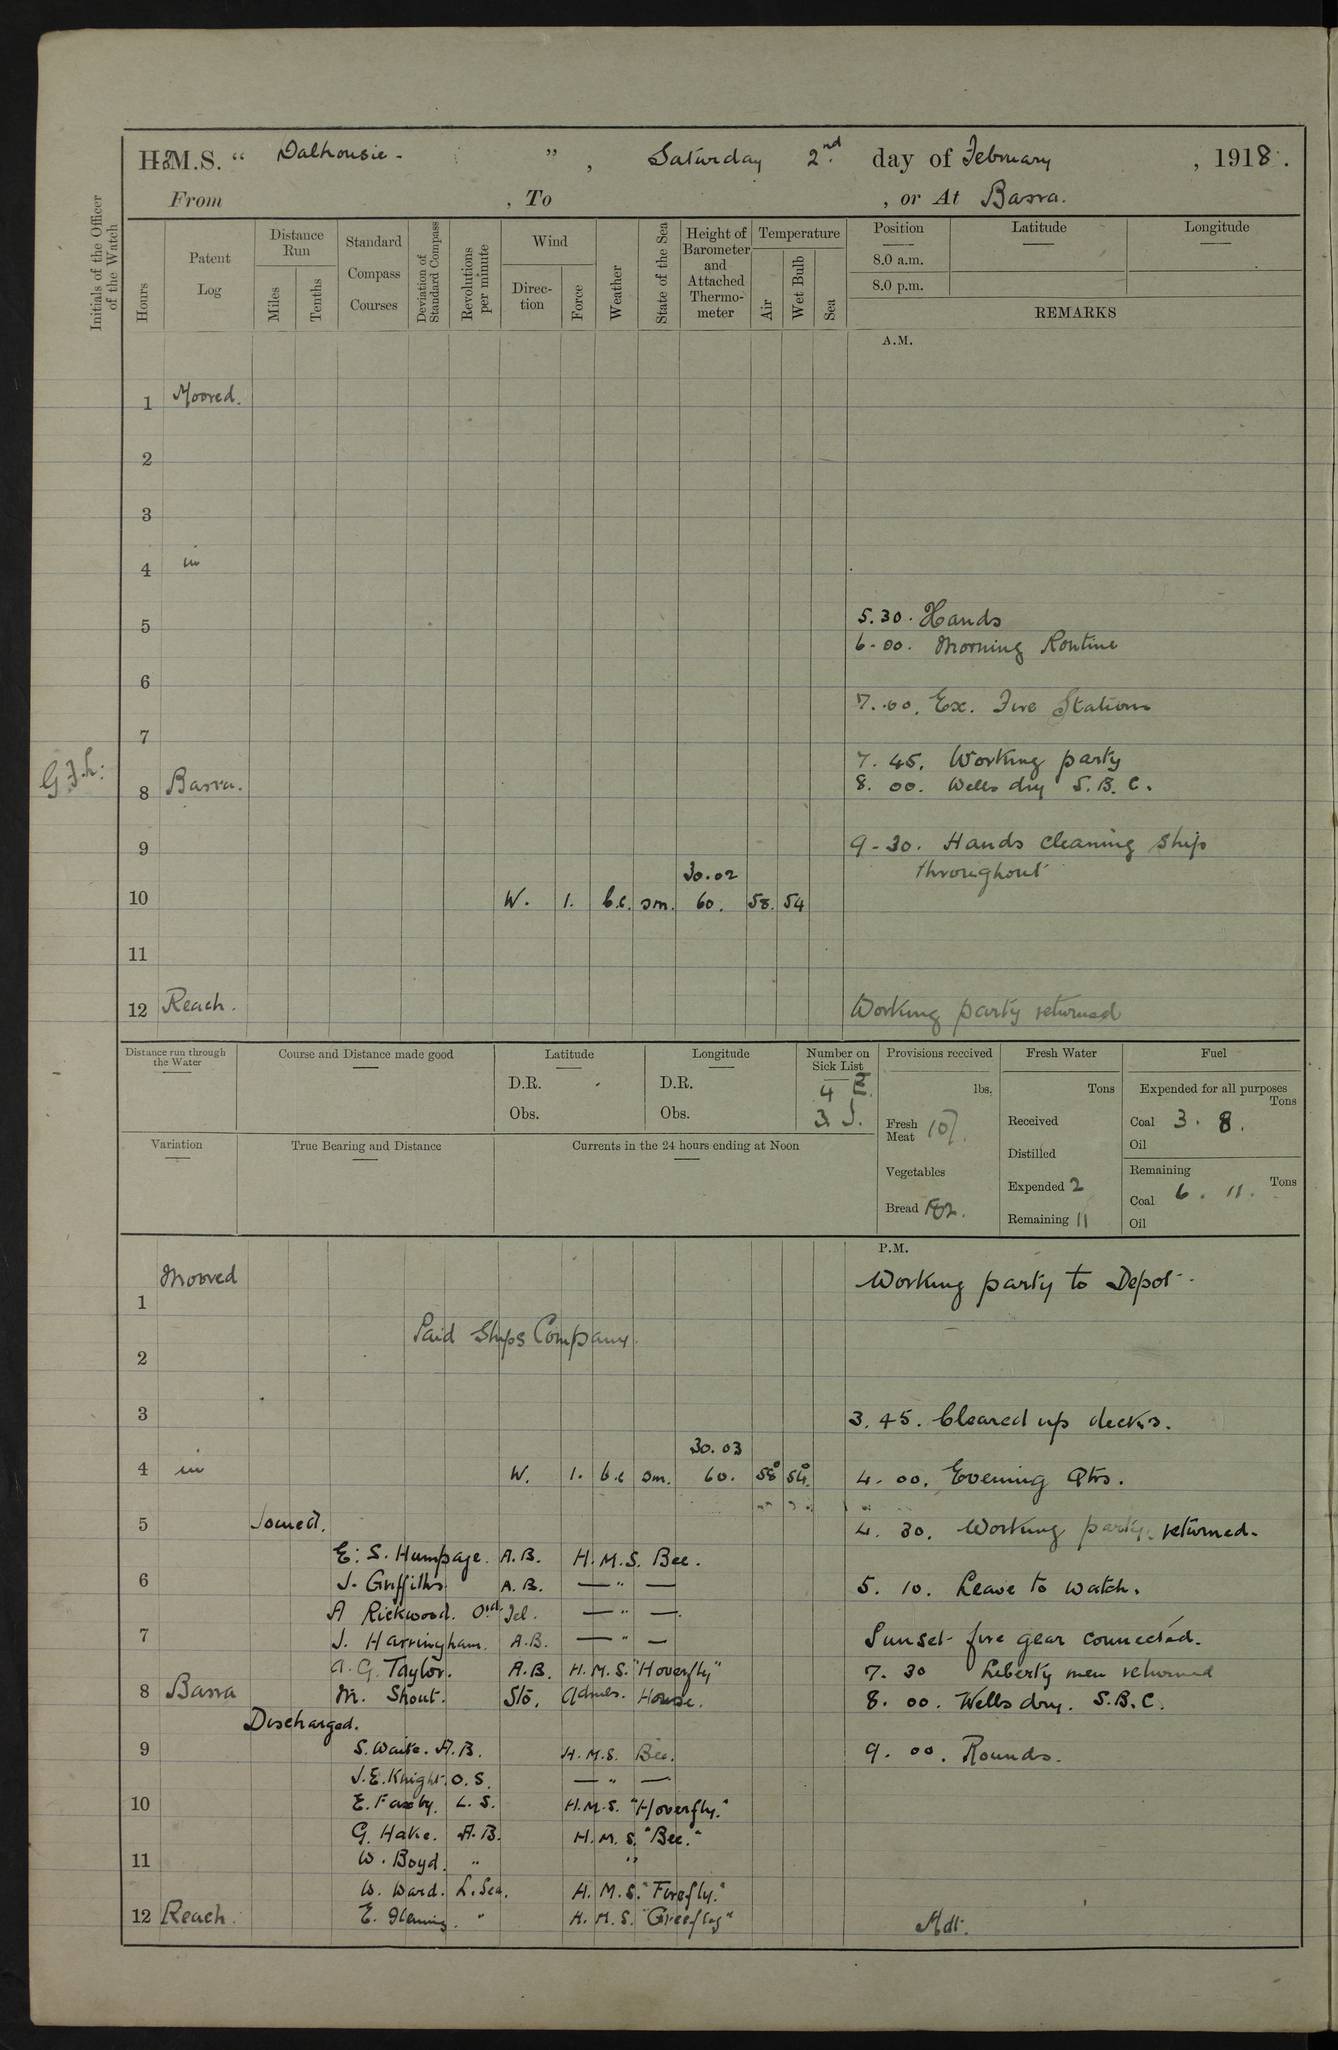 H.M.S. “ Dalhousie - ” , Saturday 2nd day of February , 1918 .
From , To , or At Basra.
Initials of the Officer of the Watch
Hours
Patent Log
Distance Run
Miles
Tenths
Standard Compass Courses
Deviation of Standard Compass
Revolutions per minute
Wind
Direc-tion
Force
Weather
State of the Sea
Height of Barometer and Attached Thermo-meter
Temperature
Air
Wet Bulb
Sea
Position
8.0 a.m.
8.0 p.m.
Latitude
Longitude
REMARKS
A.M.
1 Moored.
2
3
4 in
5.30. Hands
5
6-00. Morning Routine
6
7.00. Ex. Fire Stations
7
7.45. Working party
8 Basra. 8.00. Wells dry S.B.C.
9
9-30. Hands cleaning ship
throughout
30.02
10 W. 1. b.c. sm. 60. 58. 54
11
12 Reach. Working party returned
Distance run through the Water
Course and Distance made good
Latitude
D.R.
Obs.
Longitude
D.R.
Obs.
Number on Sick List
4 E.
3 S.
Provisions received
lbs.
Fresh Meat 107.
Vegetables
Bread 182.
Fresh Water
Tons
Received
Distilled
Expended 2
Remaining 11
Fuel
Expended for all purposes
Tons
Coal 3. 8.
Oil
Remaining
Tons
Coal 6. 11.
Oil
Variation
True Bearing and Distance
Currents in the 24 hours ending at Noon
P.M.
Moored Working party to Depot.
1
Paid Ships Company.
2
3 3.45. Cleared up decks.
30.03
4 in W. 1. b.c sm. 60. 58° 54° 4.00. Evening Qtrs.
5 Joined. 4.30. Working party returned.
E. S. Humpage. A.B. H.M.S. Bee.
6 J. Griffiths A.B. — " — 5.10. Leave to watch.
A Rickwood. Ord. Tel. — " —.
7 J. Harringham. A.B. — " — Sunset fire gear connected.
A. G. Taylor. A.B. H.M.S. "Hoverfly" 7.30 Liberty men returned
8 Basra M. Shout. Sto. Admls. House. 8.00. Wells dry. S.B.C.
Discharged.
9 S. Waite. A.B. H.M.S. Bee. 9.00. Rounds.
J.E. Knight. O.S. — " —
10 E. Faxby. L.S. H.M.S. "Hoverfly."
G. Hake. A.B. H.M.S. "Bee."
11 W. Boyd. " "
W. Ward. L.Sea. H.M.S. "Firefly."
12 Reach. E. Fleming. " H.M.S. "Greenfly" Mdt.